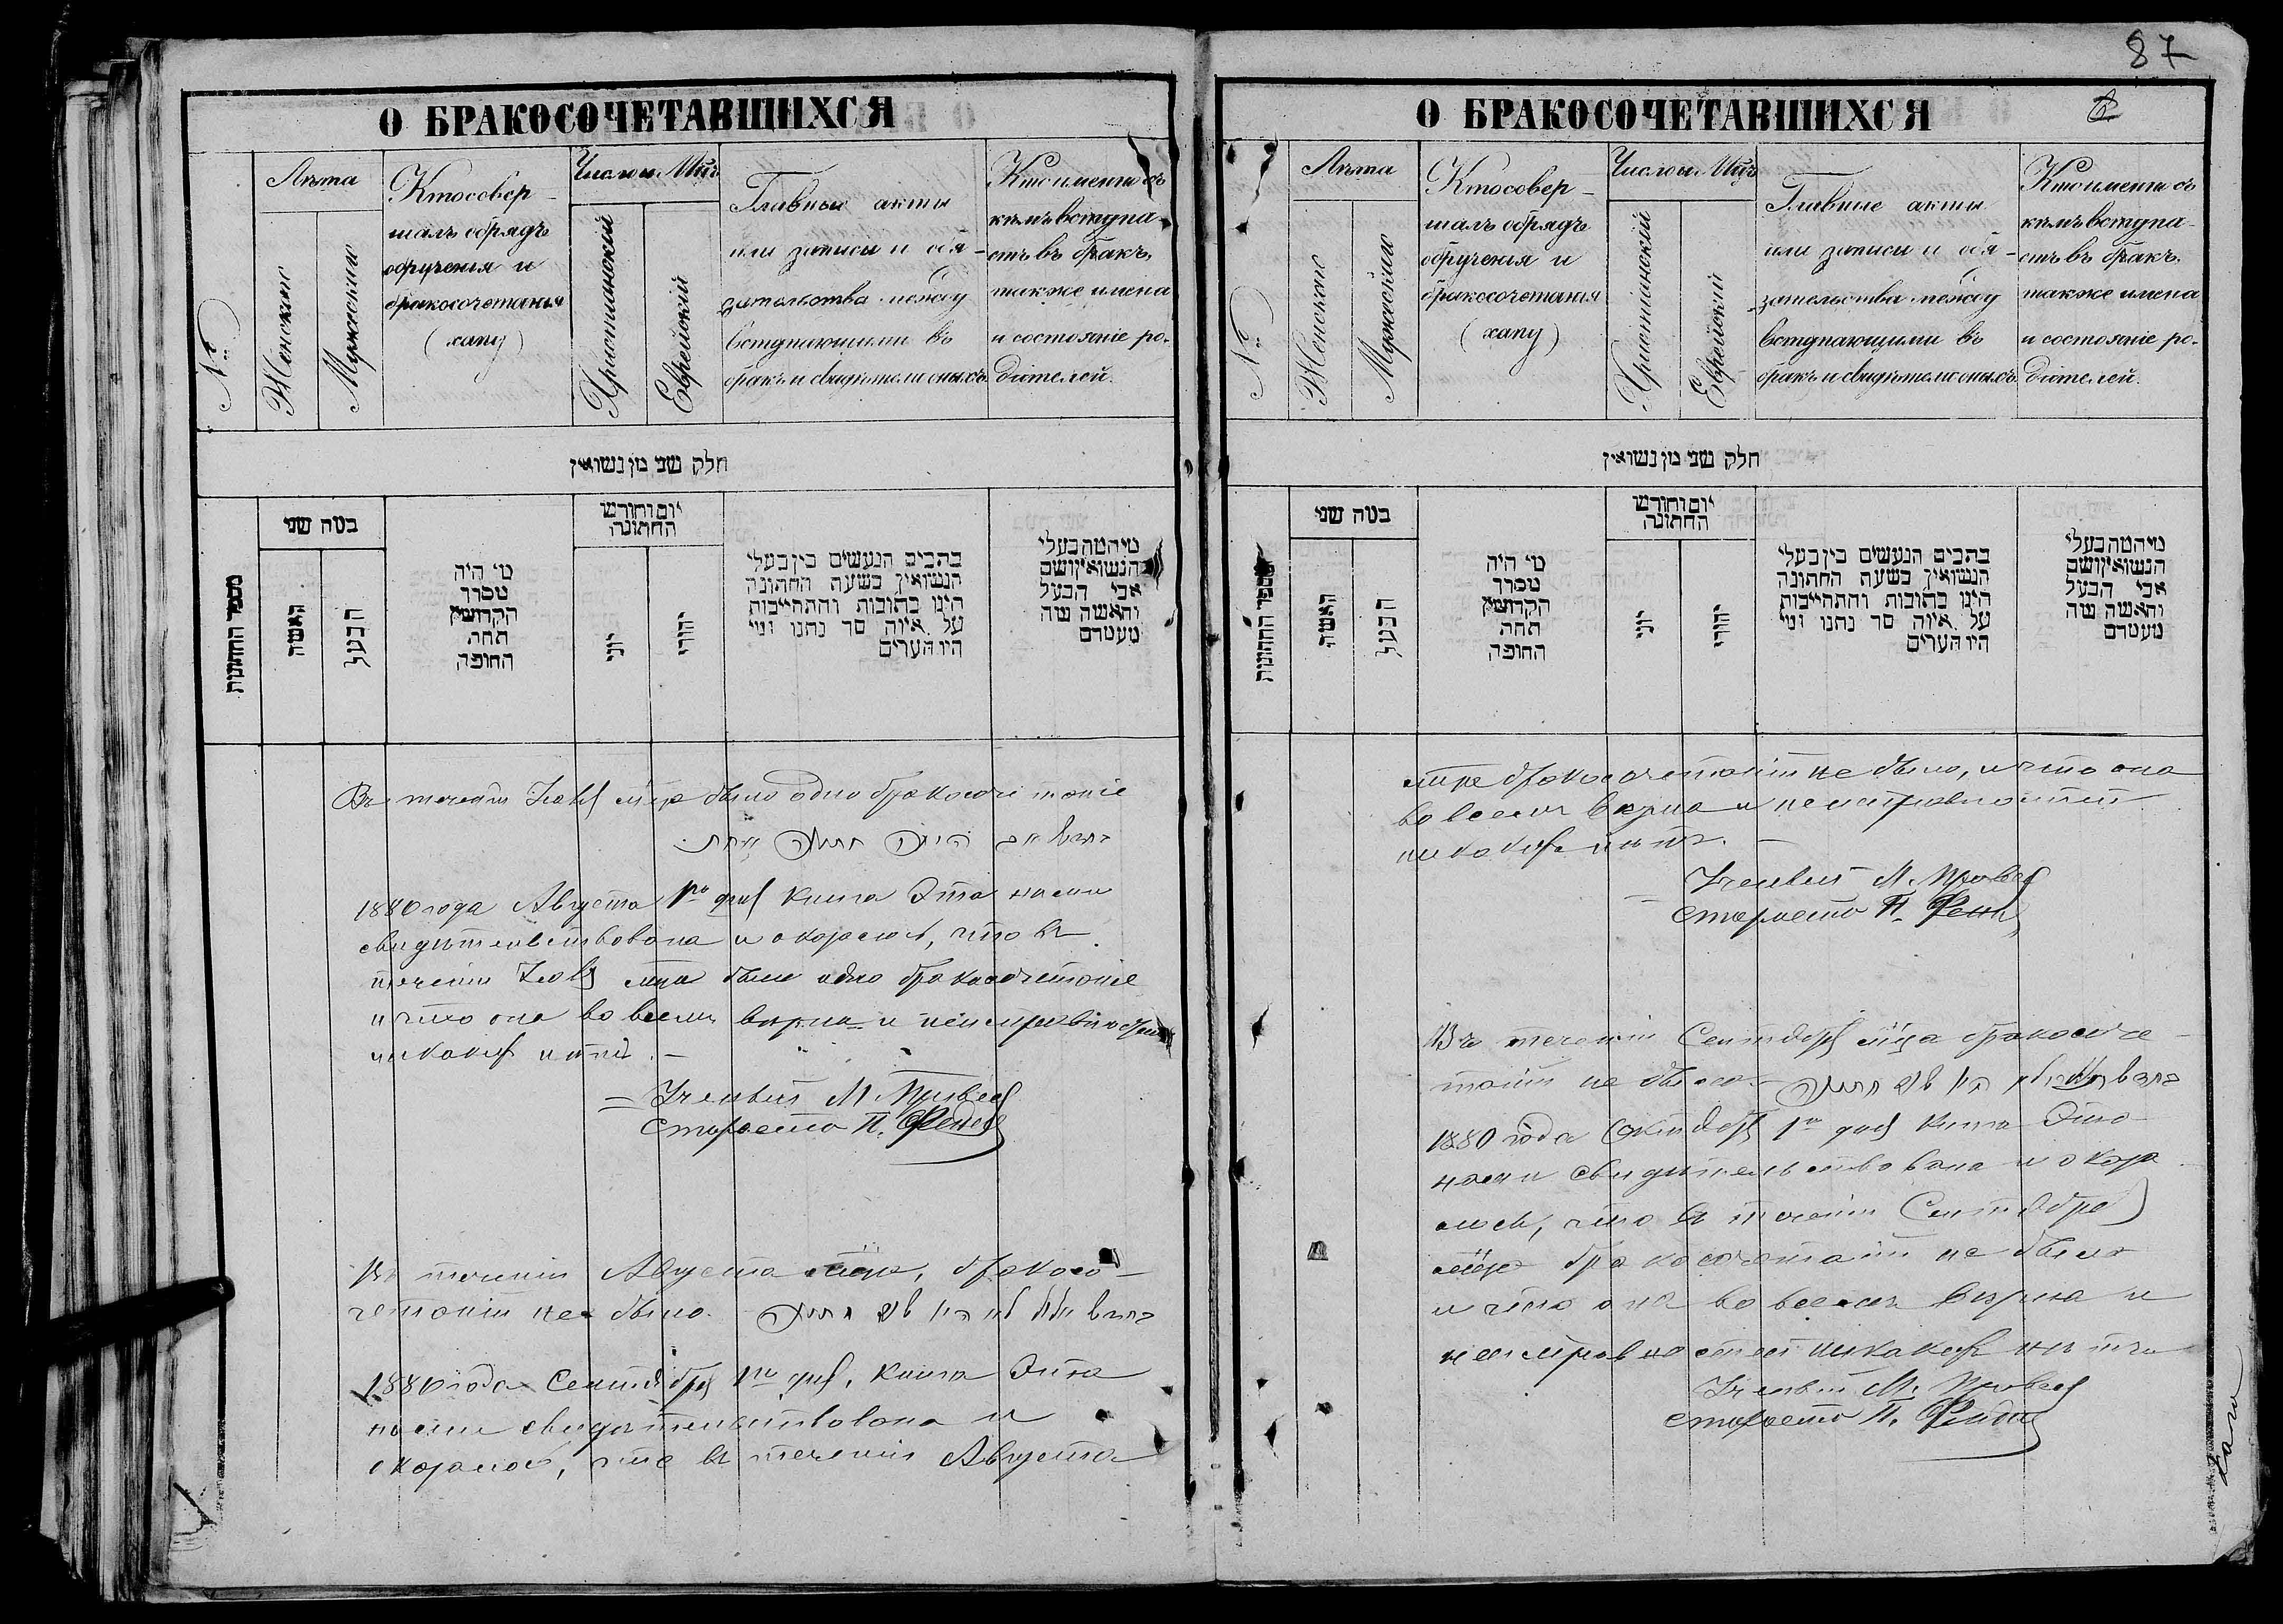 87
О БРАКОСОЧЕТАВШИХСЯ
№
Лѣта
Женскіе
Мужескіе
Кто совер-
шалъ обрядъ
обрученія и
бракосочетанія
(хапу)
Число и Мѣц
Христіанскій
Еврейскій
Главные акты
или записи и обя-
зательства между
вступающими въ
бракъ и свидѣтели оныхъ.
Кто именно съ
кѣмъ вступа-
етъ въ бракъ,
также имена
и состояніе ро-
дителей.
חלק שני מן נשואין
מספר החתונות
כמה שני
האשה
הבעל
מי היה
מסדר
הקדושין
תחת
החופה
יום וחודש
החתונה
יוני
יהודי
כתבים הנעשים בין בעלי
הנשואין בשעת החתונה
היינו כתובות והתחייבות
על איזה סך נתנו ומי
היו העדים
מי המה בעלי
הנשואין ושם
אבי הבעל
והאשה ומה
מעמדם
Въ теченіи Іюля мѣца было одно бракосочетаніе
היה חתונה אחת
1880 года Августа 1го дня книга Эта нами
свидѣтельствована и оказалось, что въ
теченіи Іюля мца было одно бракосочетаніе
и что она во всемъ вѣрна и неисправностей
никакихъ нѣтъ. —
Староста П.
Въ теченіи Августа мѣца, бракосо-
четаній не было.
חתונה
1880 года Сентября 1го дня, книга Эта
нами свидѣтельствована и
оказалось, что въ теченіи Августа
О БРАКОСОЧЕТАВШИХСЯ
№
Лѣта
Женскіе
Мужескіе
Кто совер-
шалъ обрядъ
обрученія и
бракосочетанія
(хапу)
Число и Мѣц
Христіанскій
Еврейскій
Главные акты
или записи и обя-
зательства между
вступающими въ
бракъ и свидѣтели оныхъ.
Кто именно съ
кѣмъ вступа-
етъ въ бракъ,
также имена
и состояніе ро-
дителей.
חלק שני מן נשואין
מספר החתונות
כמה שני
האשה
הבעל
מי היה
מסדר
הקדושין
תחת
החופה
יום וחודש
החתונה
יוני
יהודי
כתבים הנעשים בין בעלי
הנשואין בשעת החתונה
היינו כתובות והתחייבות
על איזה סך נתנו ומי
היו העדים
מי המה בעלי
הנשואין ושם
אבי הבעל
והאשה ומה
מעמדם
мѣца бракосочетаній не было, и что она
во всемъ вѣрна и неисправностей
никакихъ нѣтъ. —
Староста П.
Въ теченіи Сентября мѣца бракосоче-
таній не было.
חתונה
1880 года Октября 1го дня книга Эта
нами свидѣтельствована и оказа-
лось, что въ теченіи Сентября
мѣца бракосочетаній не было
и что она во всемъ вѣрна и
неисправностей никакихъ нѣтъ
Староста П.